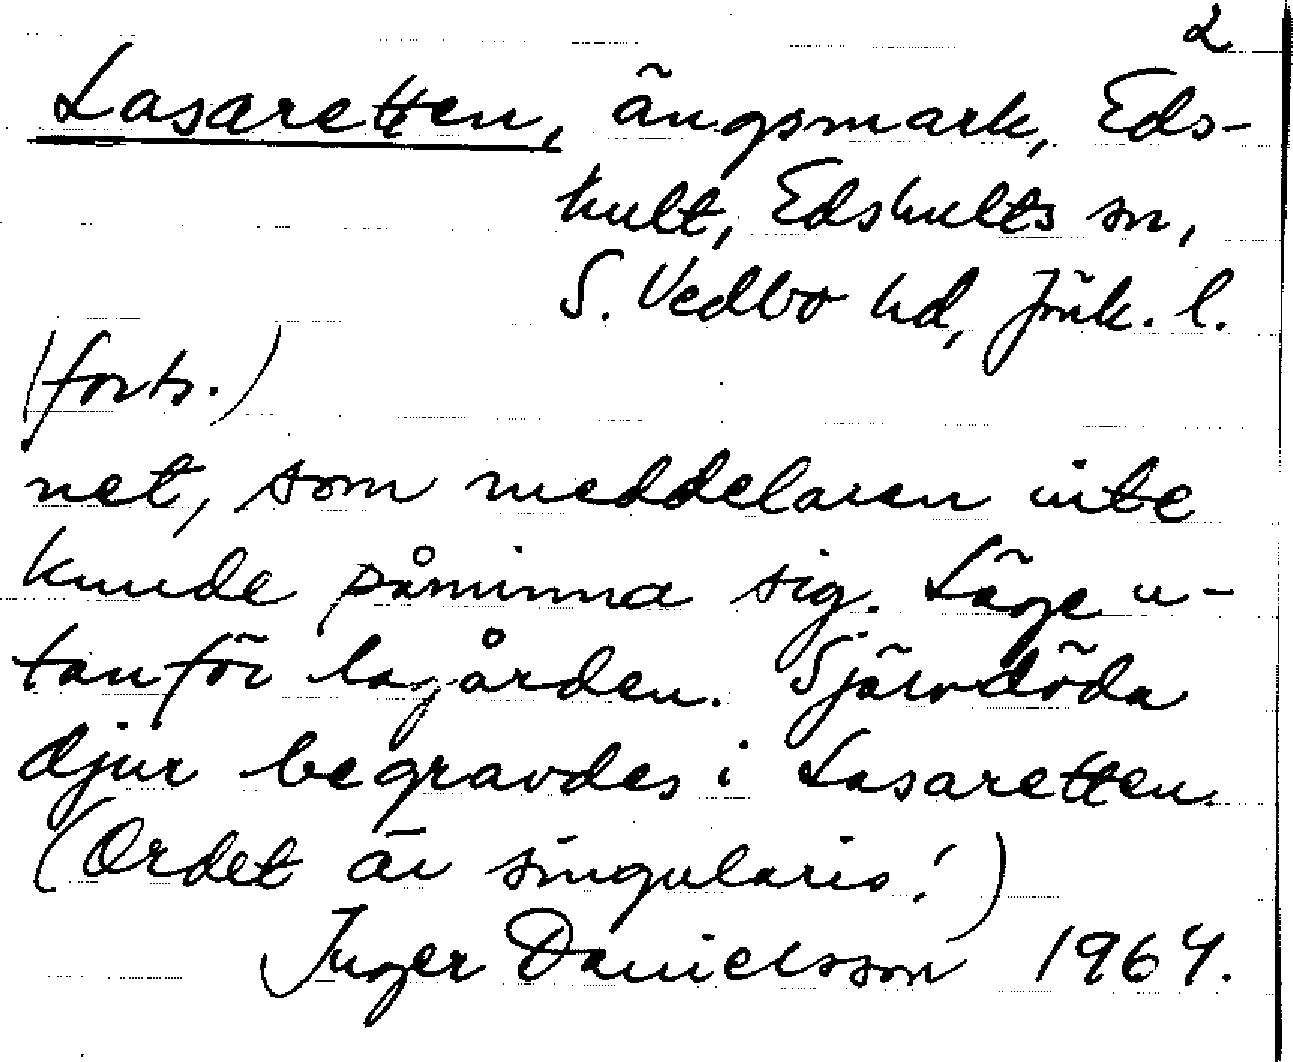 2
Lasaretten, ängsmark, Eds-
hult, Edshults sn,
S. Vedbo hd, Jönk. l.
(forts.)
net, som meddelaren inte
kunde påminna sig. Läge u-
tanför lagården. Självdöda
djur begravdes i Lasaretten.
(Ordet är singularis!)
Inger Danielsson 1964.